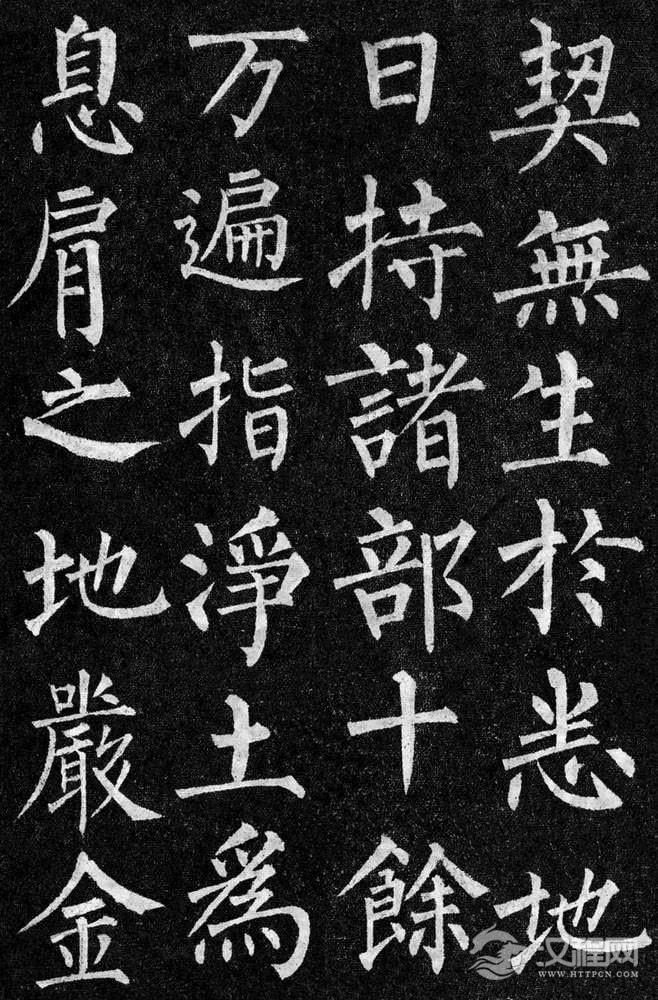 契無生於悉地
日持諸部十餘
万遍指淨土爲
息肩之地嚴金
汉程网
WWW.HTTPCN.COM